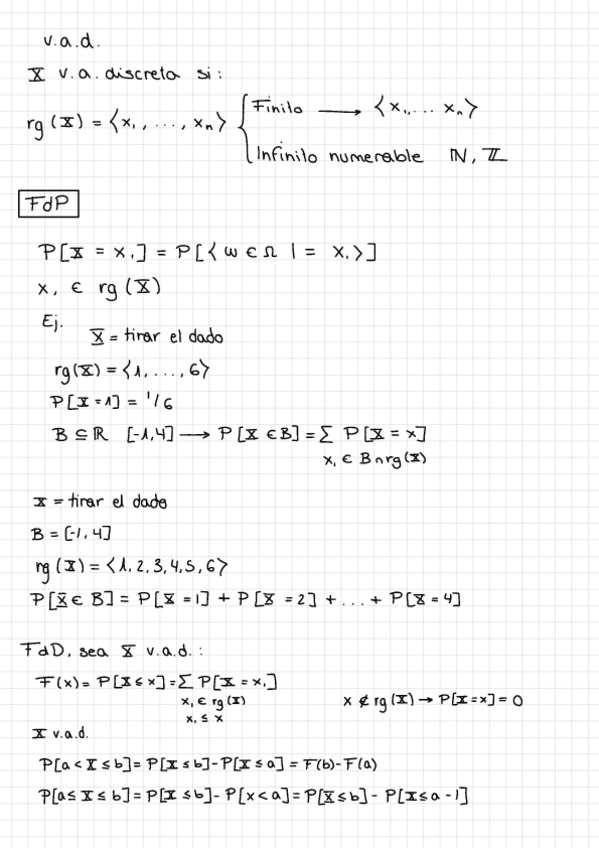 v.a.d.
X v.a. discreta si:
rg(X) = {x₁, ..., xₙ} { Finito → {x₁, ... xₙ}
Infinito numerable ℕ, ℤ
FdP
P[X = x₁] = P[{ω ∈ Ω | = x₁}]
x₁ ∈ rg(X)
Ej.
X = tirar el dado
rg(X) = {1, ..., 6}
P[X = 1] = 1/6
B ⊆ ℝ [-1,4] → P[X ∈ B] = Σ P[X = x]
x₁ ∈ B ∩ rg(X)
X = tirar el dado
B = [-1, 4]
rg(X) = {1, 2, 3, 4, 5, 6}
P[X ∈ B] = P[X = 1] + P[X = 2] + ... + P[X = 4]
FdD, sea X v.a.d.:
F(x) = P[X ≤ x] = Σ P[X = x₁]
x₁ ∈ rg(X)
x₁ ≤ x
x ∉ rg(X) → P[X = x] = 0
X v.a.d.
P[a < X ≤ b] = P[X ≤ b] - P[X ≤ a] = F(b) - F(a)
P[a ≤ X ≤ b] = P[X ≤ b] - P[x < a] = P[X ≤ b] - P[X ≤ a - 1]